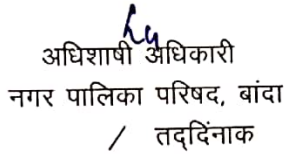 अधिशाषी अधिकारी
नगर पालिका परिषद, बांदा
/ तद्दिंनाक